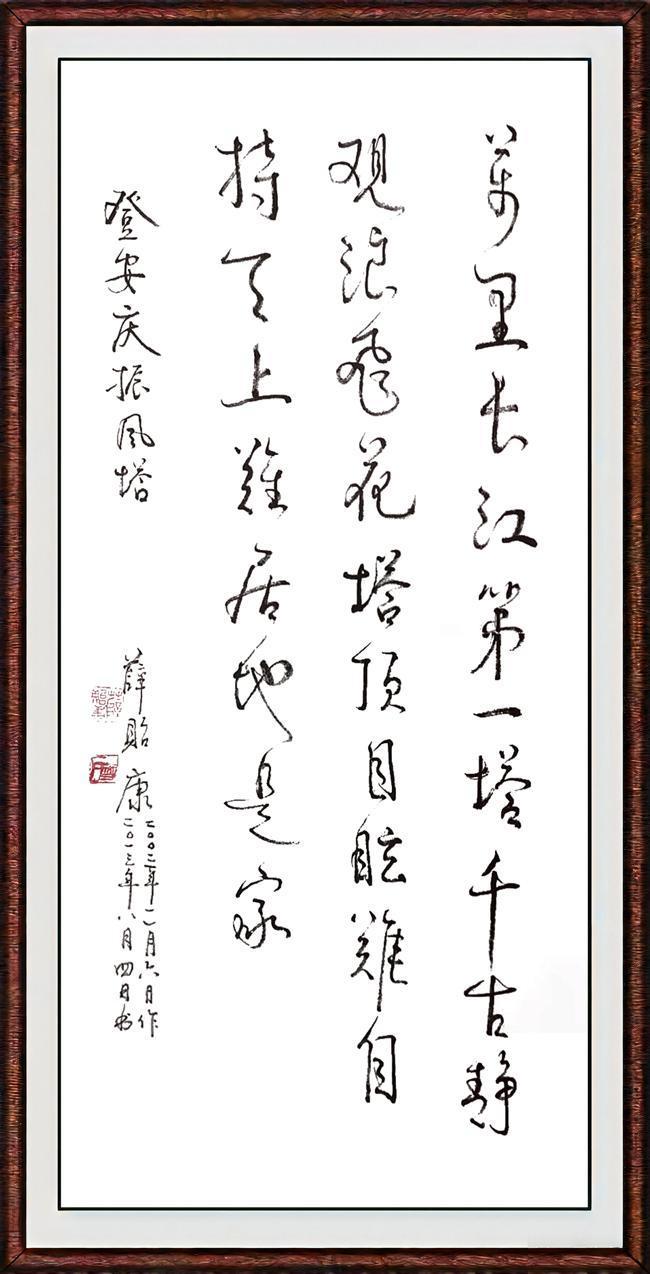 万里长江第一塔千古静
观浪飞花塔顶目眩难自
持天上难居地是家
登安庆振风塔
薛贻康
二〇〇二年二月六日作
二〇一三年八月四日书